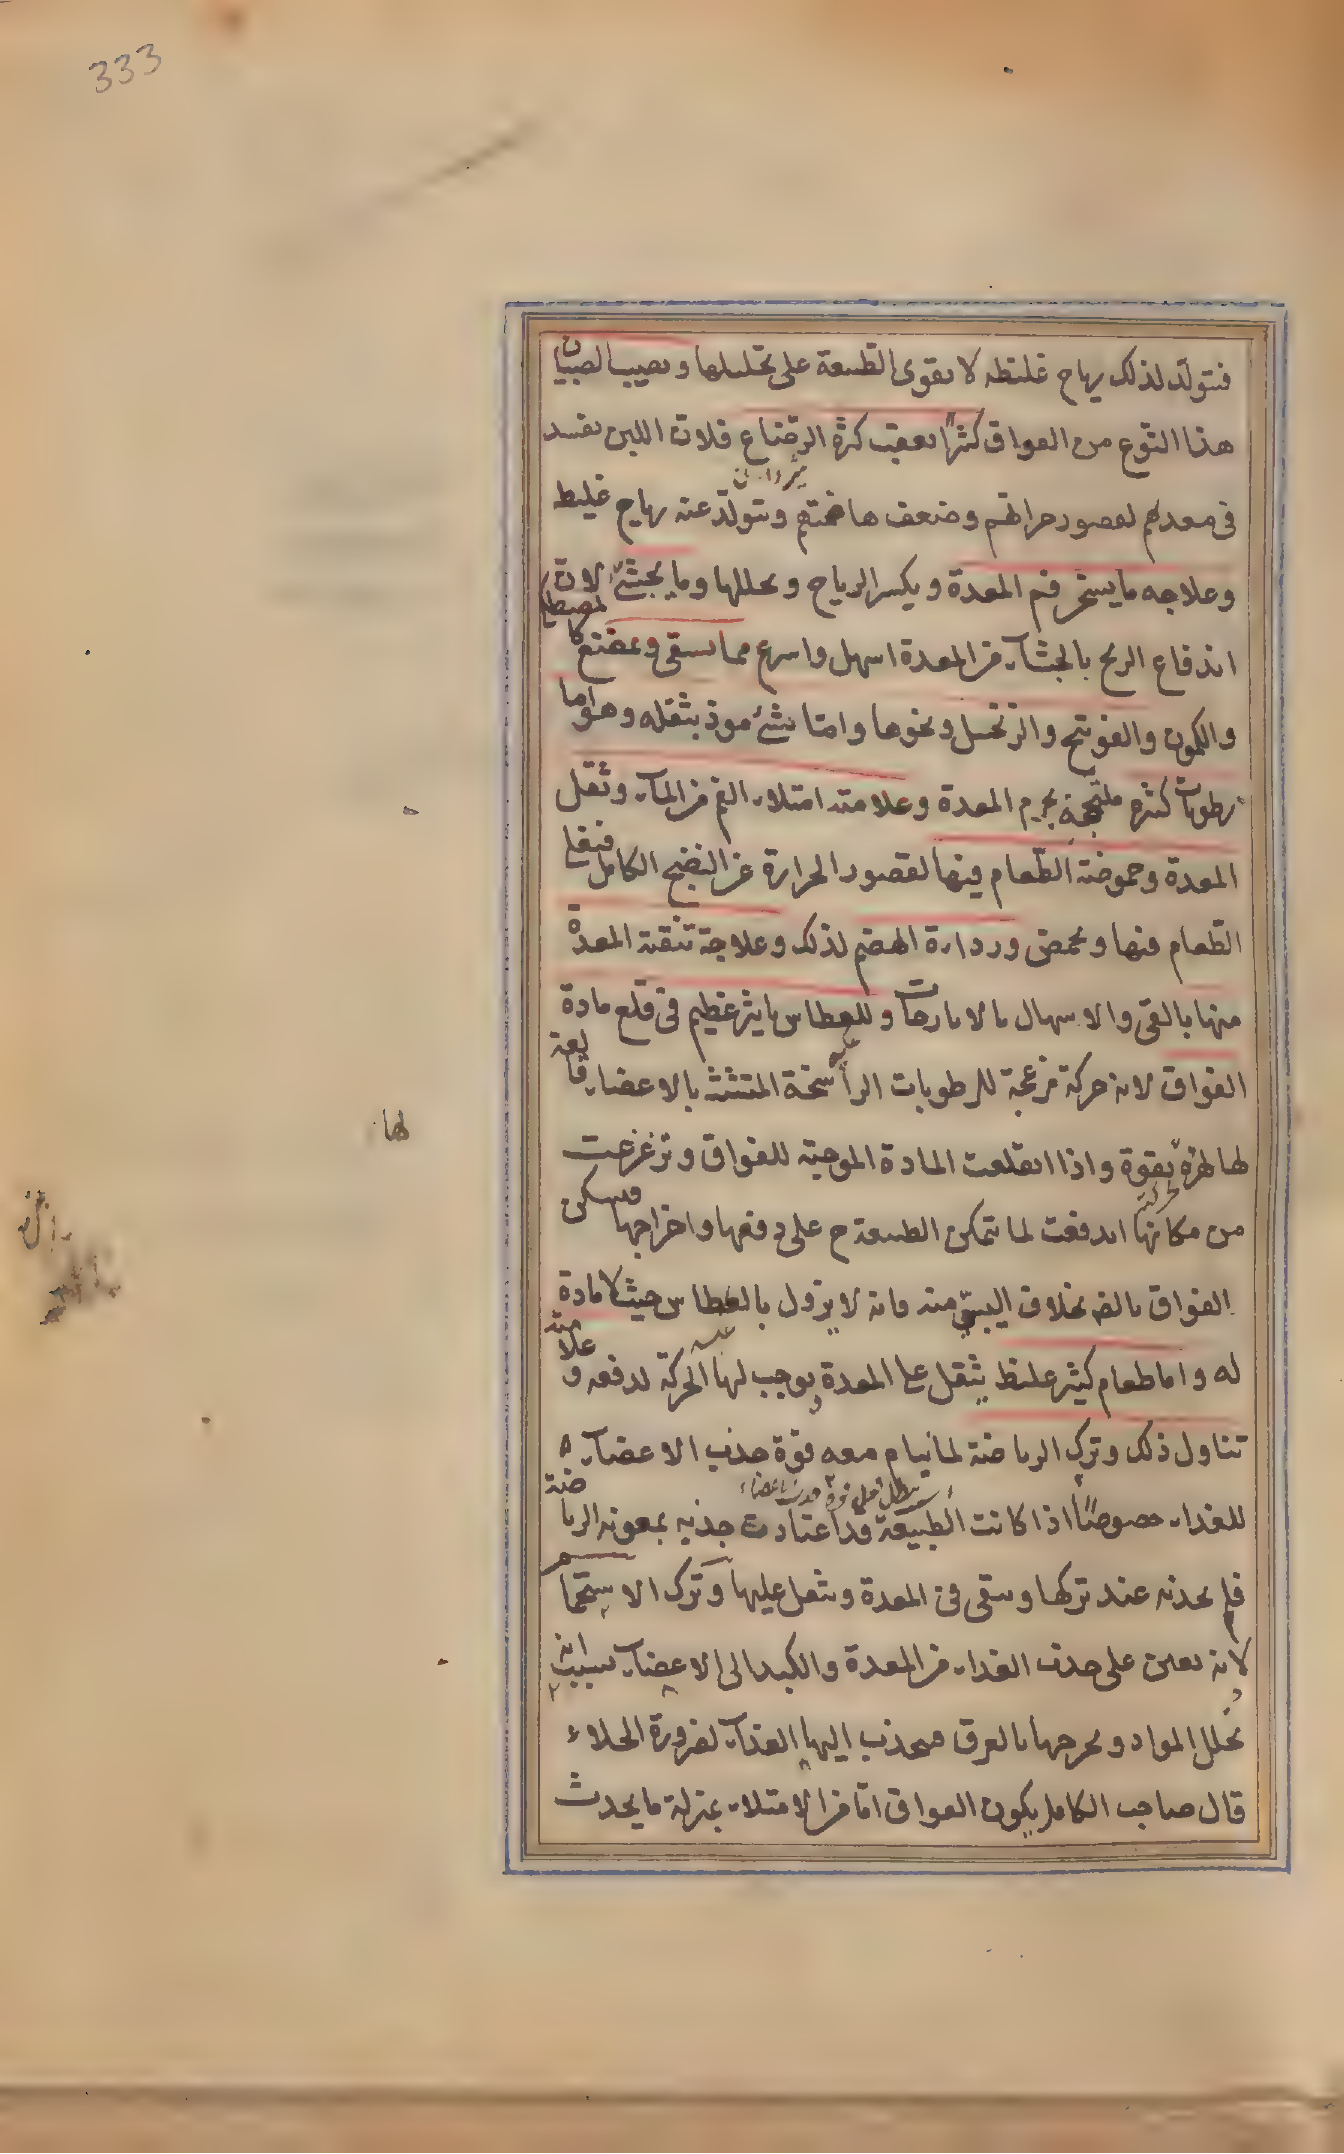 333
فتتولد لذلك رياح غليظه لا يقوى الطبيعة على تحليلها ويصيب الصبيان
هذا النوع من الفواق كثيرا بعقب كثرة الرضاع فلان اللبن يفسد
فى معدهم لقصور حرارتهم وضعف هاضمتهم ويتولد عنه رياح غليظ
وعلاجه ما يسخن فم المعدة ويكسر الرياح ويحللها وما يجشئ لان
اندفاع الريح بالجشآء من المعدة اسهل واسرع مما يسقى ويمضغ كالمصطكى
والكمون والفوتنج والزنجبيل ونحوها واما شئ موذ بثقله وهو اما
رطوبات كثيرة بجرم المعدة وعلامته امتلاء الفم من المآء وثقل
المعدة وحموضة الطعام فيها لقصور الحرارة عن النضج الكامل فيبقى
الطعام فيها ويحمض ورداءة الهضم لذلك وعلاجه تنقية المعدة
منها بالقئ والاسهال بالايارجات وللعطاس تاثير عظيم فى قلع مادة
الفواق لانه حركة مزعجة للرطوبات الراسخة المتشبثة بالاعضاء قالعة
لها لهزه بقوة واذا انقلعت المادة الموجبة للفواق وتزعزعت
من مكانها اندفعت لما تتمكن الطبيعة ح على دفعها واخراجها فيسكن
الفواق بالضرورة بخلاف اليبسى منه فانه لا يزول بالعطاس حيث لا مادة
له واما طعام كثير غليظ يثقل على المعدة ويوجب لها الحركة لدفعه وعلامته
تناول ذلك وترك الرياضة لما ينام معه قوة جذب الاعضآء
للغداء خصوصا اذا كانت الطبيعة قد اعتادت جذبه بمعونة الرياضة
فلم يجذبه عند تركها ويبقى فى المعدة ويثقل عليها وترك الاستحمام
لانه يعين على جذب الغذاء من المعدة والكبد الى الاعضآء بسبب انه
يحلل المواد ويخرجها بالعرق فيجذب اليها الغذآء لضرورة الخلاء
قال صاحب الكامل يكون الفواق اما من الامتلاء بمنزلة ما يحدث
لها